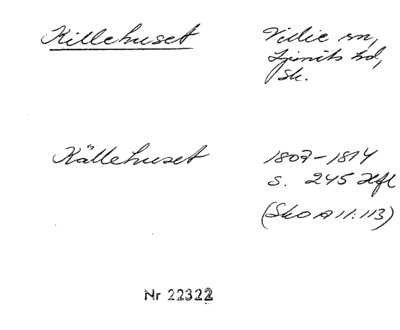 Killehuset
Villie sn,
Ljunits hd,
Sk.
Källehuset
1807-1814
s. 245 Hfl
(Sko A II:113)
Nr 22322